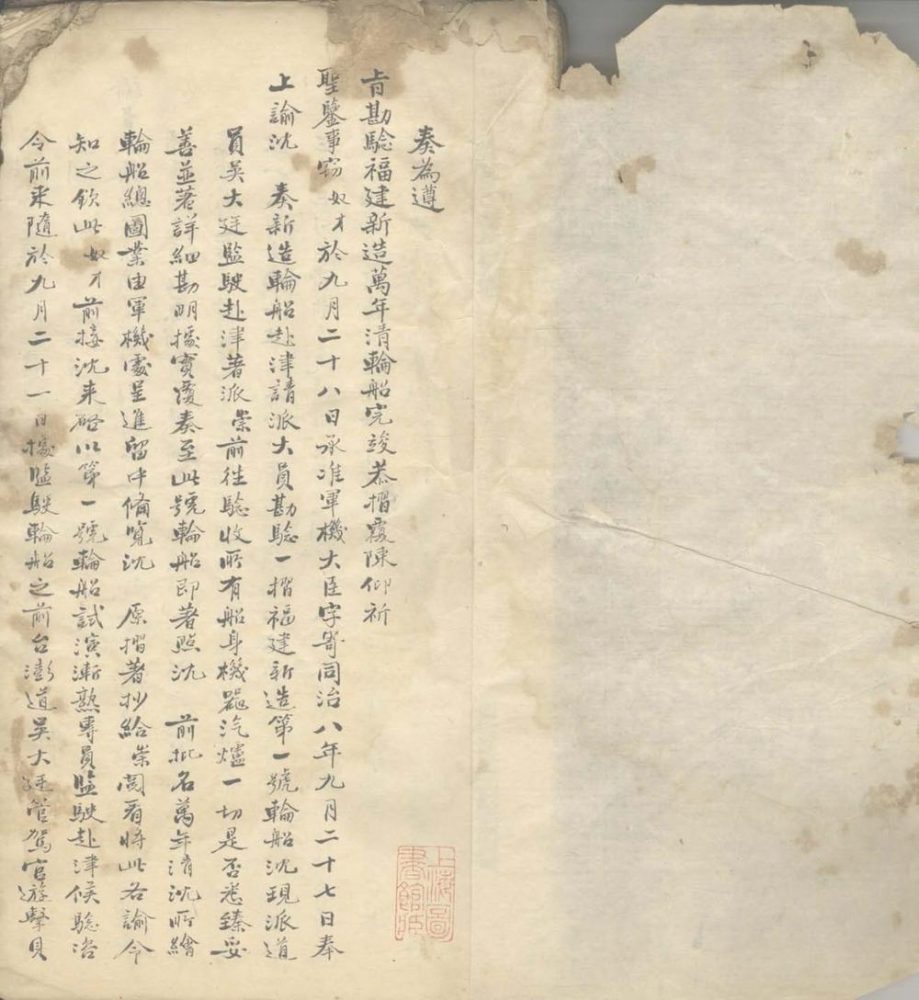 奏為遵
旨勘驗福建新造萬年清輪船完竣恭摺覆陳仰祈
聖鑒事竊奴才於九月二十八日承准軍機大臣字寄同治八年九月二十七日奉
上諭沈 奏新造輪船赴津請派大員勘驗一摺福建新造第一號輪船沈現派道
員吳大廷監駛赴津著派崇前往驗收所有船身機器汽爐一切是否悉臻妥
善並著詳細勘明據實覆奏至此號輪船即著照沈 前批名萬年清沈所繪
輪船總圖業由軍機處呈進留中備覽沈 原摺著抄給崇閱看將此各諭令
知之欽此奴才前接沈来咨以第一號輪船試演漸熟專員監駛赴津候驗咨
令前来隨於九月二十一日據監駛輪船之前台澎道吳大廷管駕官遊擊貝
上海圖
書館藏